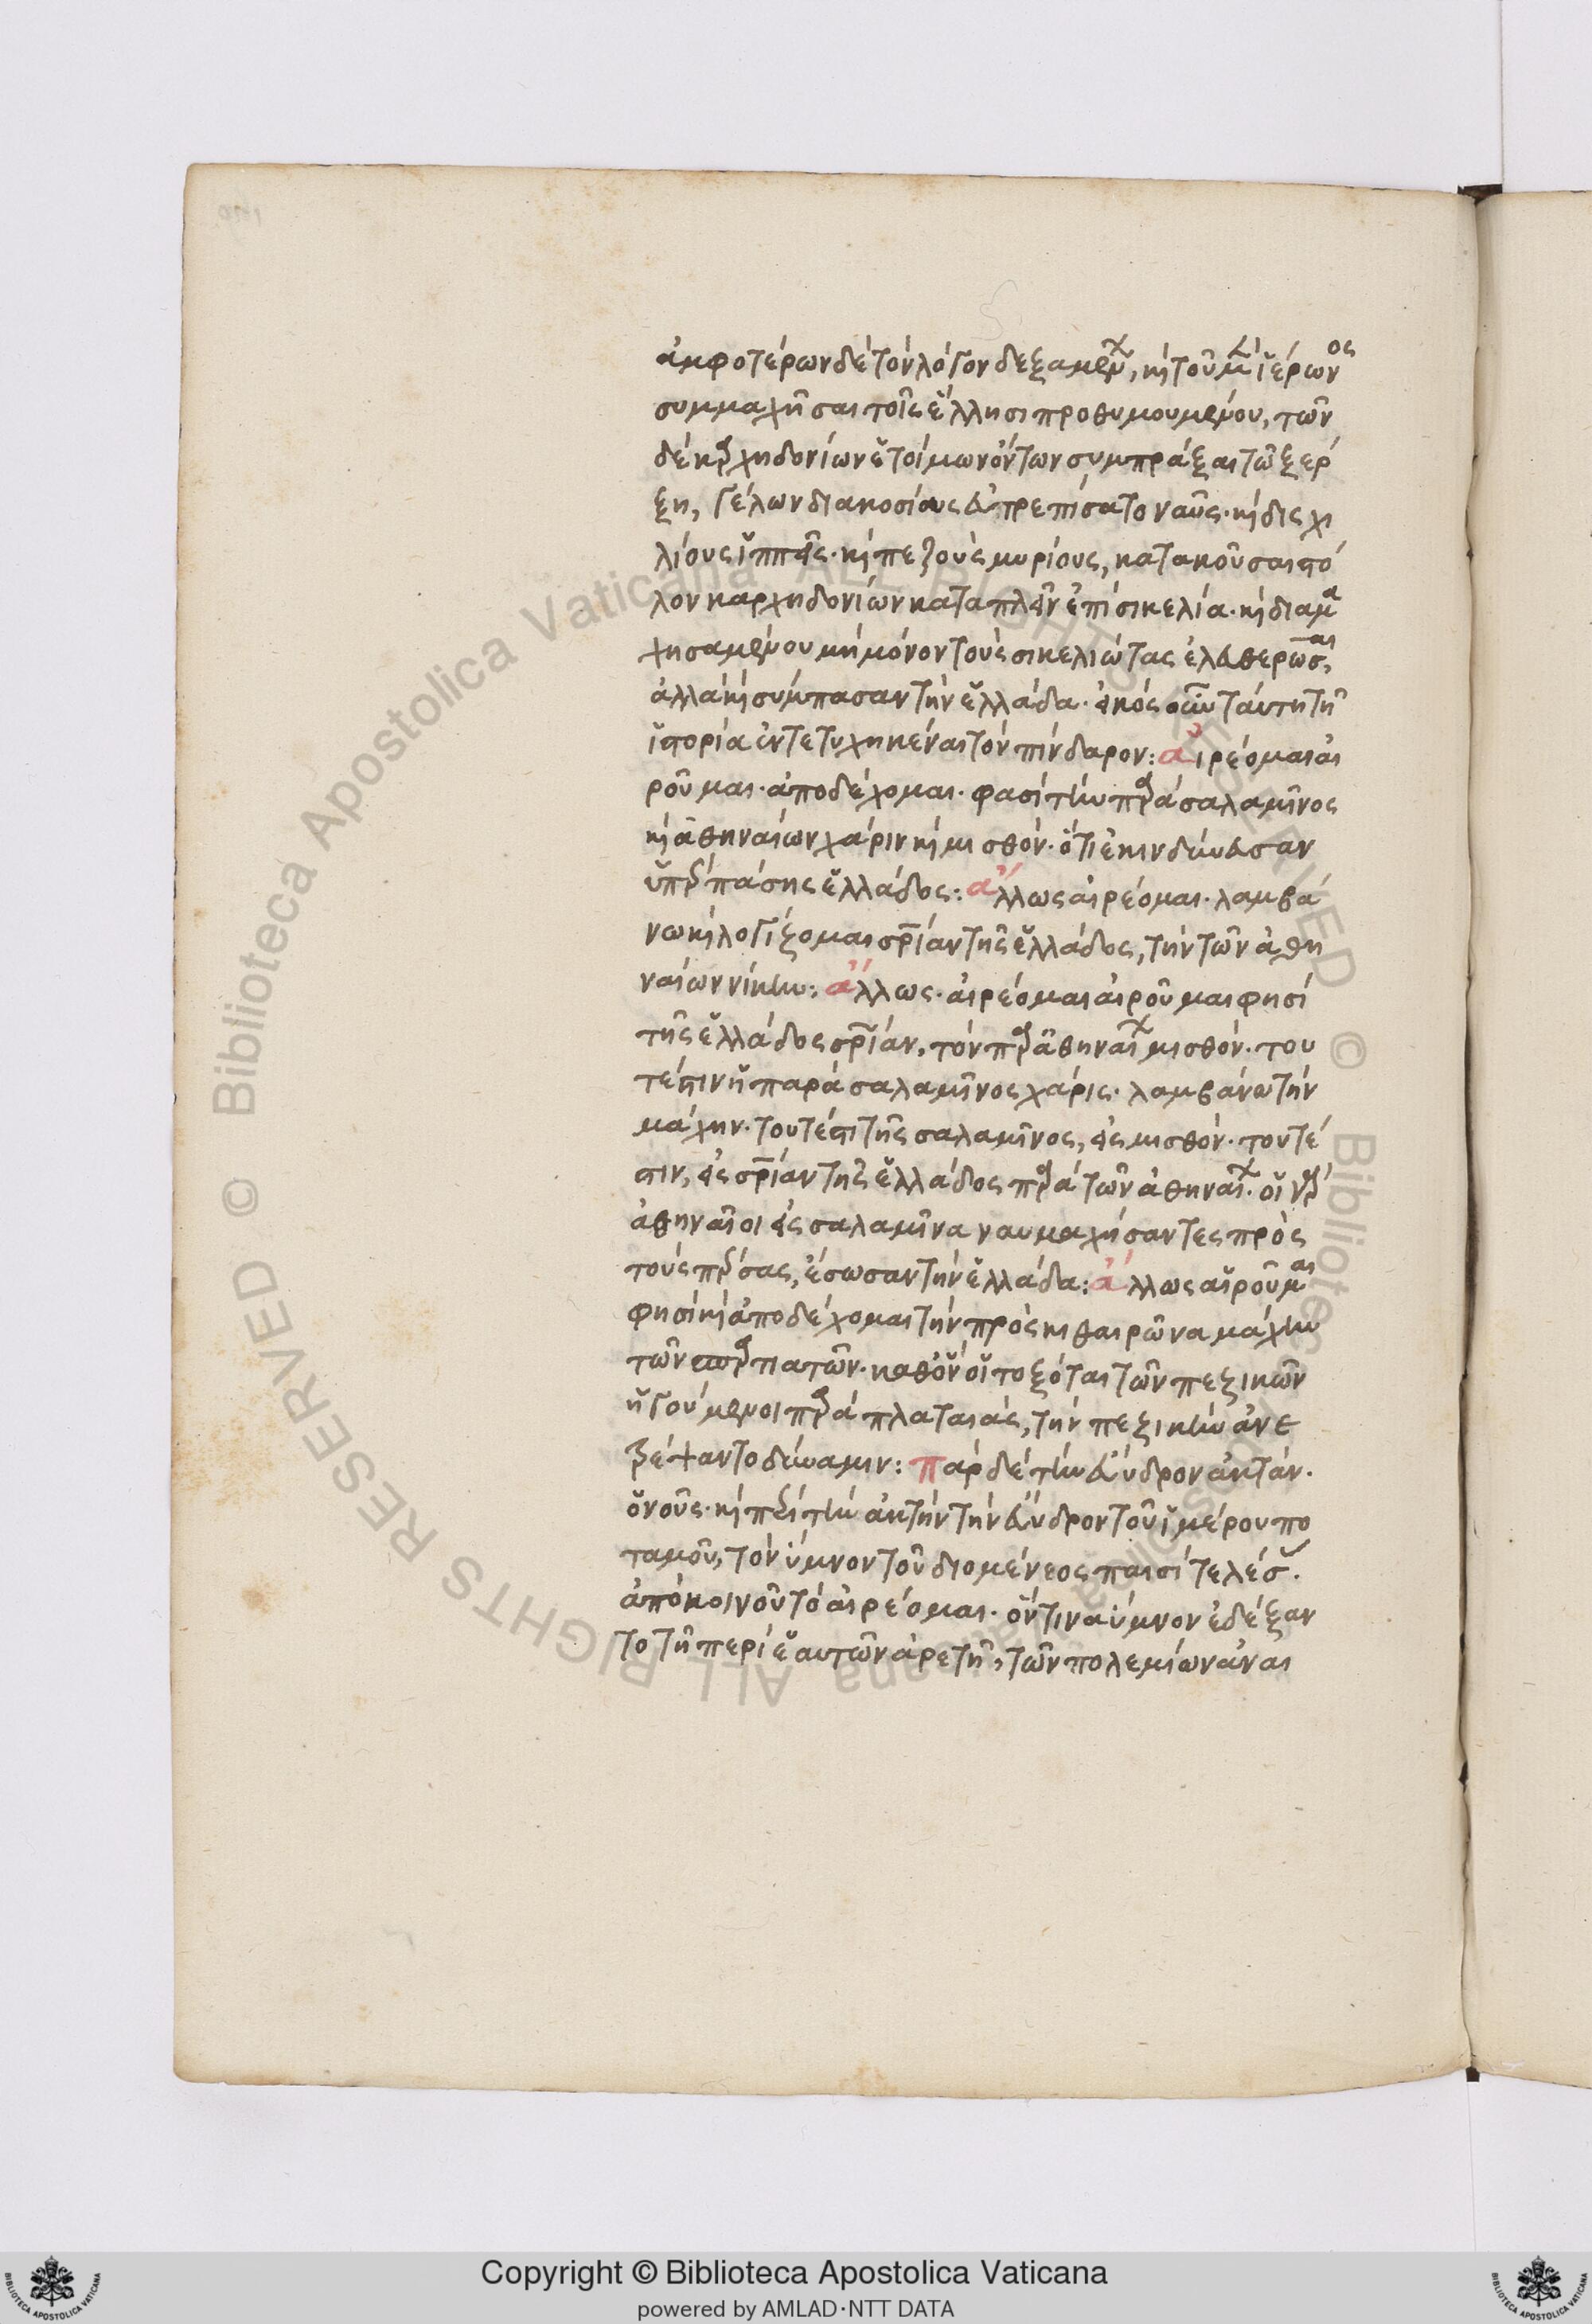 ἀμφοτέρων δὲ τὸν λόγον δεξαμένων, καὶ τοῦ μὲν ἱέρωνος
συμμαχῆσαι τοῖς ἕλλησι προθυμουμένου, τῶν
δὲ καρχηδονίων ἑτοίμων ὄντων συμπράξαι τῶ ξέρ
ξη, γέλων διακοσίους εὐπρεπίσατο ναῦς· καὶ δισχι
λίους ἱππεῖς· καὶ πεζοὺς μυρίους, κατακοῦσαι στό
λον καρχηδονίων καταπλεῖν ἐπὶ σικελία· καὶ διαμα
χησαμένου μὴ μόνον τοὺς σικελιώτας ἐλευθερῶσαι,
ἀλλὰ καὶ σύμπασαν τὴν ἑλλάδα· εἰκός οὖν ταύτη τῆ
ἱστορία ἐντετυχηκέναι τὸν πίνδαρον: αἱρέομαι αἱ
ροῦμαι· ἀποδέχομαι· φασὶ τὴν παρὰ σαλαμῖνος
καὶ ἀθηναίων χάριν καὶ μισθόν· ὅτι ἐκινδύνευσαν
ὑπὲρ πάσης ἑλλάδος: ἄλλως αἱρέομαι· λαμβά
νω καὶ λογίζομαι σωτηρίαν τῆς ἑλλάδος, τὴν τῶν ἀθη
ναίων νίκην: ἄλλως· αἱρέομαι αἱροῦμαι φησὶ
τῆς ἑλλάδος σωτηρίαν, τὸν παρὰ ἀθηναίων μισθόν· του
τέστιν ἡ παρὰ σαλαμῖνος χάρις· λαμβάνω τὴν
μάχην· τουτέστι τῆς σαλαμῖνος, εἰς μισθόν· τουτέ
στιν, εἰς σωτηρίαν τῆς ἑλλάδος παρὰ τῶν ἀθηναίων· οἱ γὰρ
ἀθηναῖοι εἰς σαλαμῖνα ναυμαχήσαντες πρὸς
τοὺς πέρσας, ἔσωσαν τὴν ἑλλάδα: ἄλλως αἱροῦμαι
φησὶ καὶ ἀποδέχομαι τὴν πρὸς κιθαιρῶνα μάχην
τῶν σπαρτιατῶν· καθ' ὃν οἱ τοξόται τῶν πεζικῶν
ἡγούμενοι παρὰ πλαταιάς, τὴν πεζικὴν ἀνε
τρέψαντο δύναμιν: πὰρ δὲ τὴν εὔυδρον ἀκτάν·
ὁ νοῦς· καὶ περὶ τὴν ἀκτὴν τὴν εὔυδρον τοῦ ἱμέρου πο
ταμοῦ, τὸν ὕμνον τοῦ διομένεος παισὶ τελέσ.
ἀπὸ κοινοῦ τὸ αἱρέομαι· ὅντινα ὕμνον ἐδέξαν
το τῆ περὶ ἑαυτῶν ἀρετῆ, τῶν πολεμίων ἀναι
Copyright © Biblioteca Apostolica Vaticana
powered by AMLAD·NTT DATA